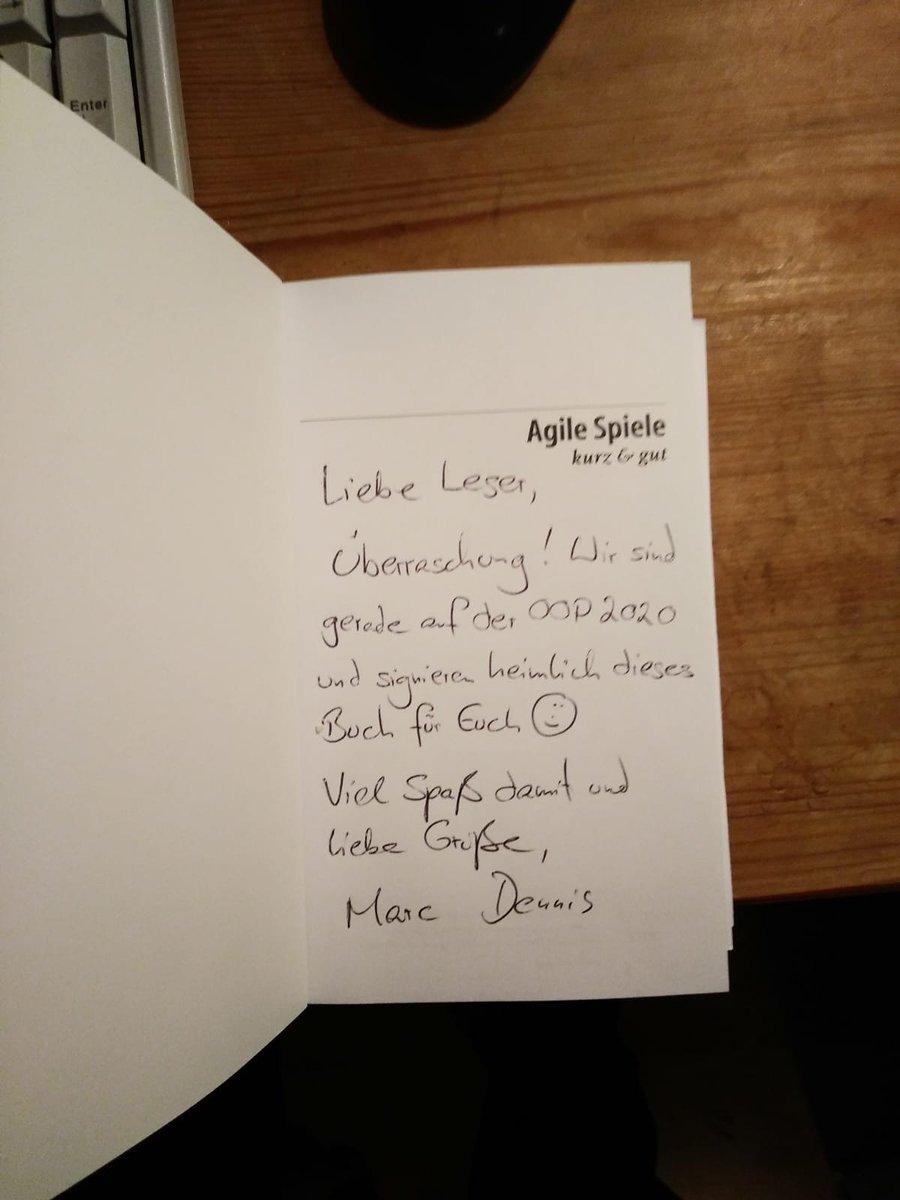 Enter
Agile Spiele
kurz & gut
Liebe Leser,
Überraschung! Wir sind
gerade auf der OOP 2020
und signieren heimlich dieses
Buch für Euch ☺
Viel Spaß damit und
liebe Grüße,
Marc Dennis